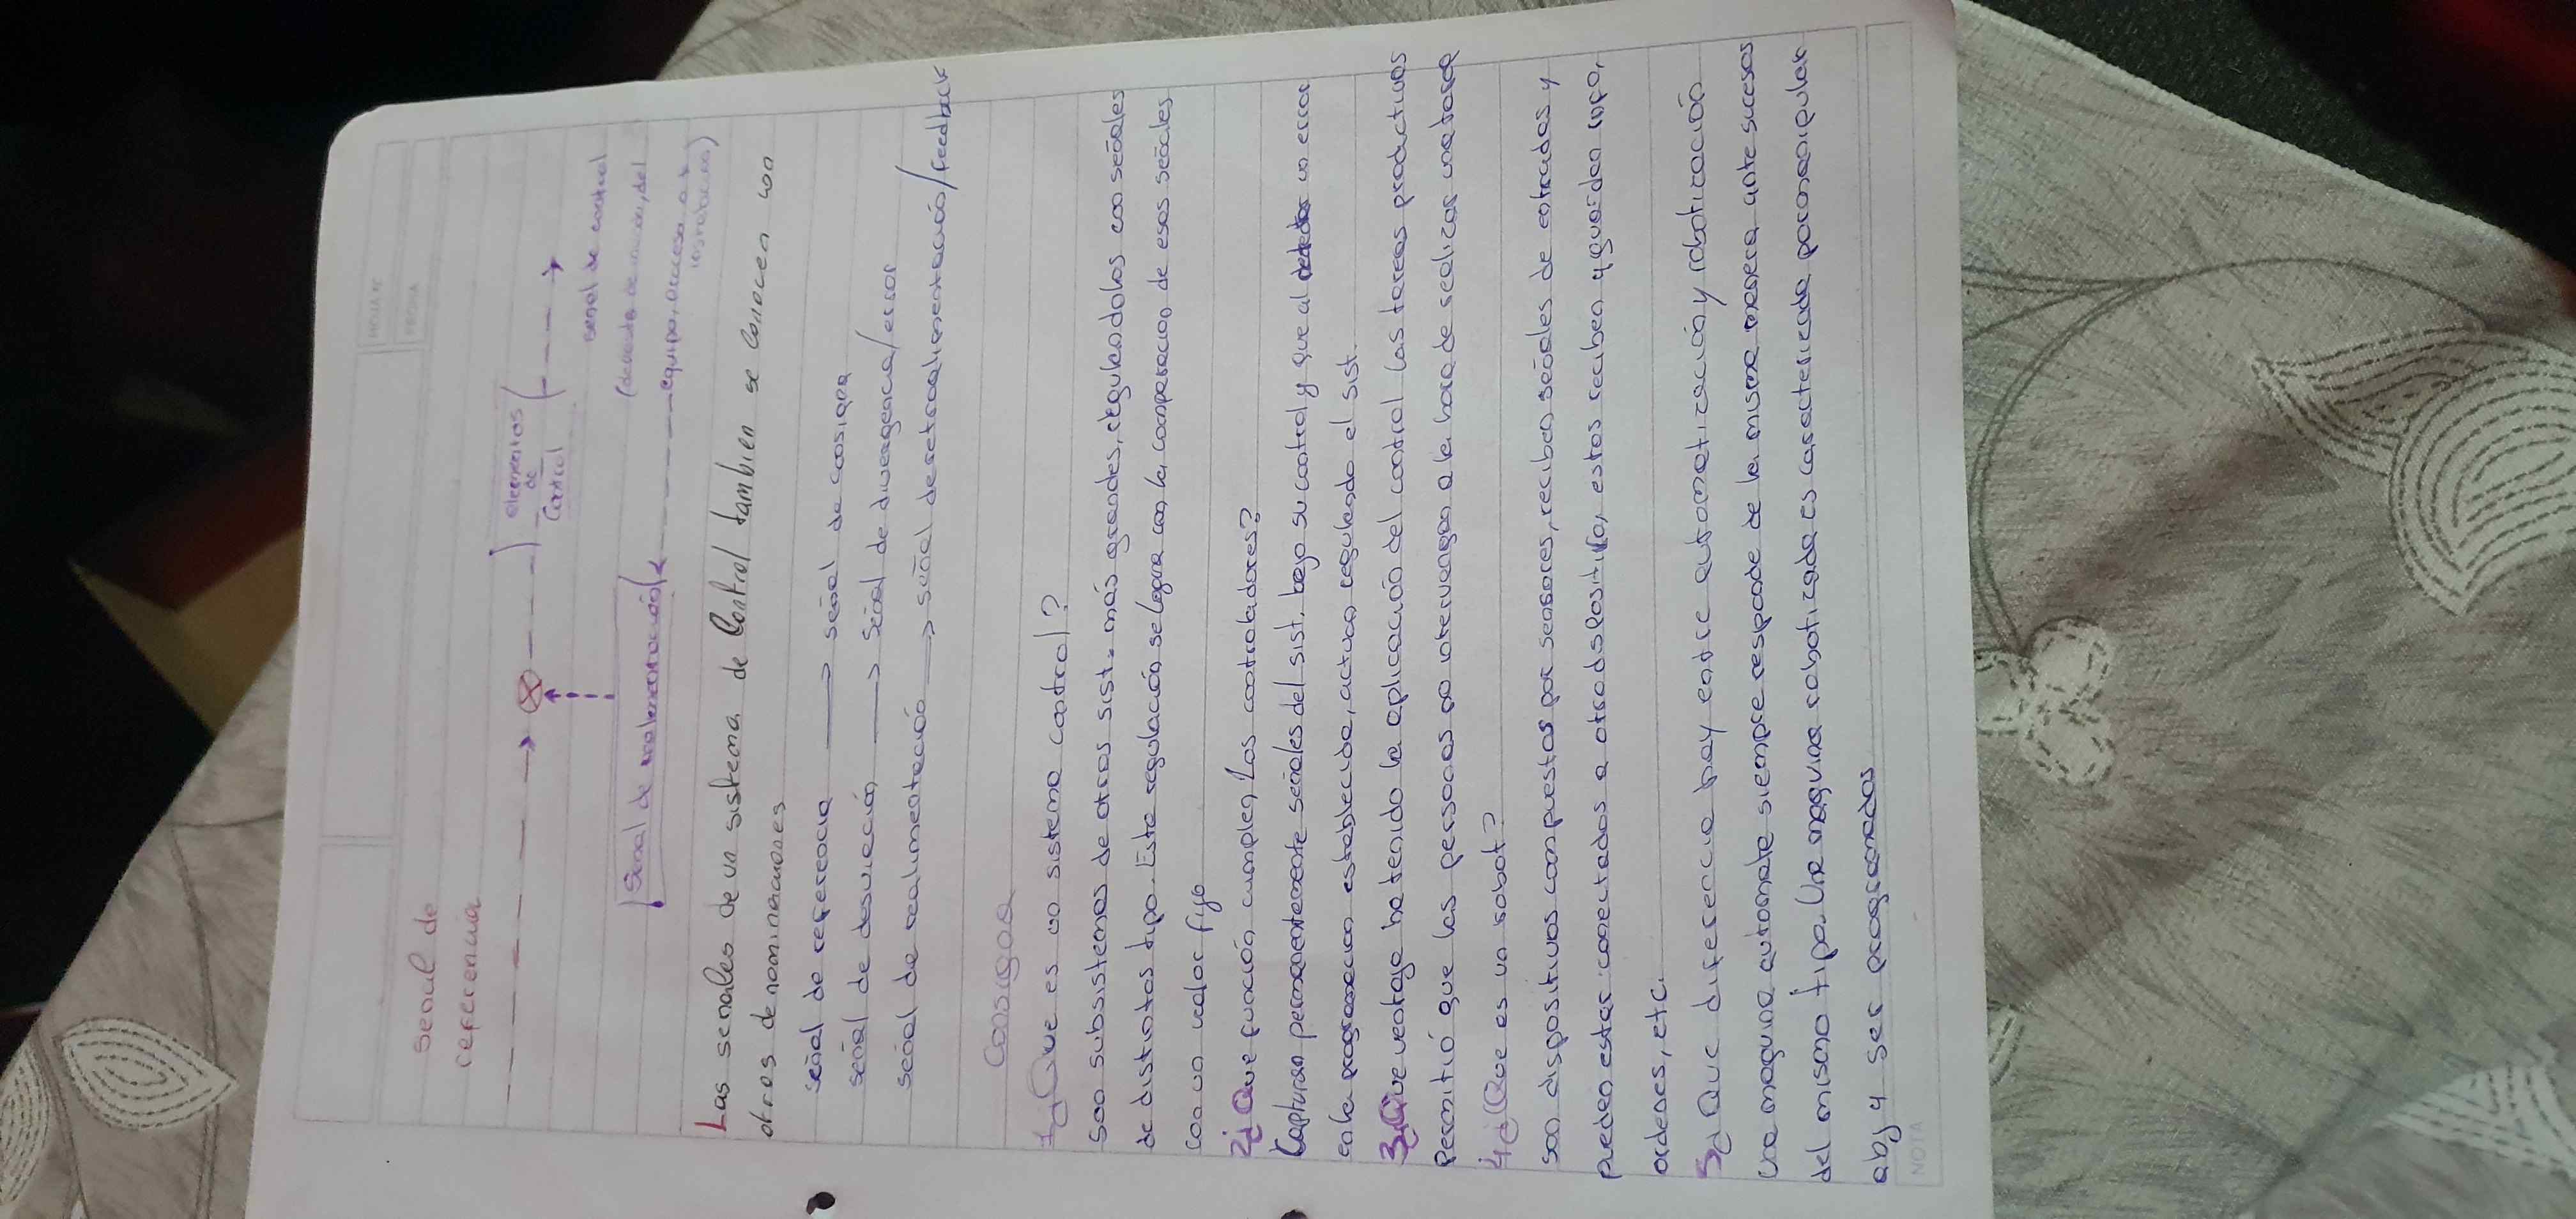 HOJA Nº
FECHA
Señal de
referencia
elementos
de
Control
señal de control
Señal de realimentación
equipo, proceso o
Las señales de un sistema de Control tambien se conocen con
otras denominaciones
señal de referencia → señal de consigna
señal de desviación → señal de divergencia/error
señal de realimentación → señal de retroalimentación/feedback
Consigna
1¿Que es un sistema control?
Son subsistemas de otros sist. más grandes, regulandolos con señales
de distintos tipo. Esta regulación se logra con la comparacion de esas señales
con un valor fijo
2¿Que función cumplen los controladores?
Capturan permanentemente señales del sist. bajo su control y que al detectar un error
en la programacion establecida, actuan regulando el sist.
3¿Que ventaja ha tenido la aplicación del control las tareas productivas
Permitió que las personas no intervengan a la hora de realizar una tarea
4¿Que es un robot?
son dispositivos compuestos por sensores, reciben señales de entradas y
pueden estar conectados a otro dispositivo, estos reciben y guardan info,
ordenes, etc.
5¿Que diferencia hay entre automatización y robotización
Una maquina automata siempre responde de la misma manera ante sucesos
del mismo tipo. Una maquina robotizada es caracterizada por manipular
obj y ser programados
NOTA